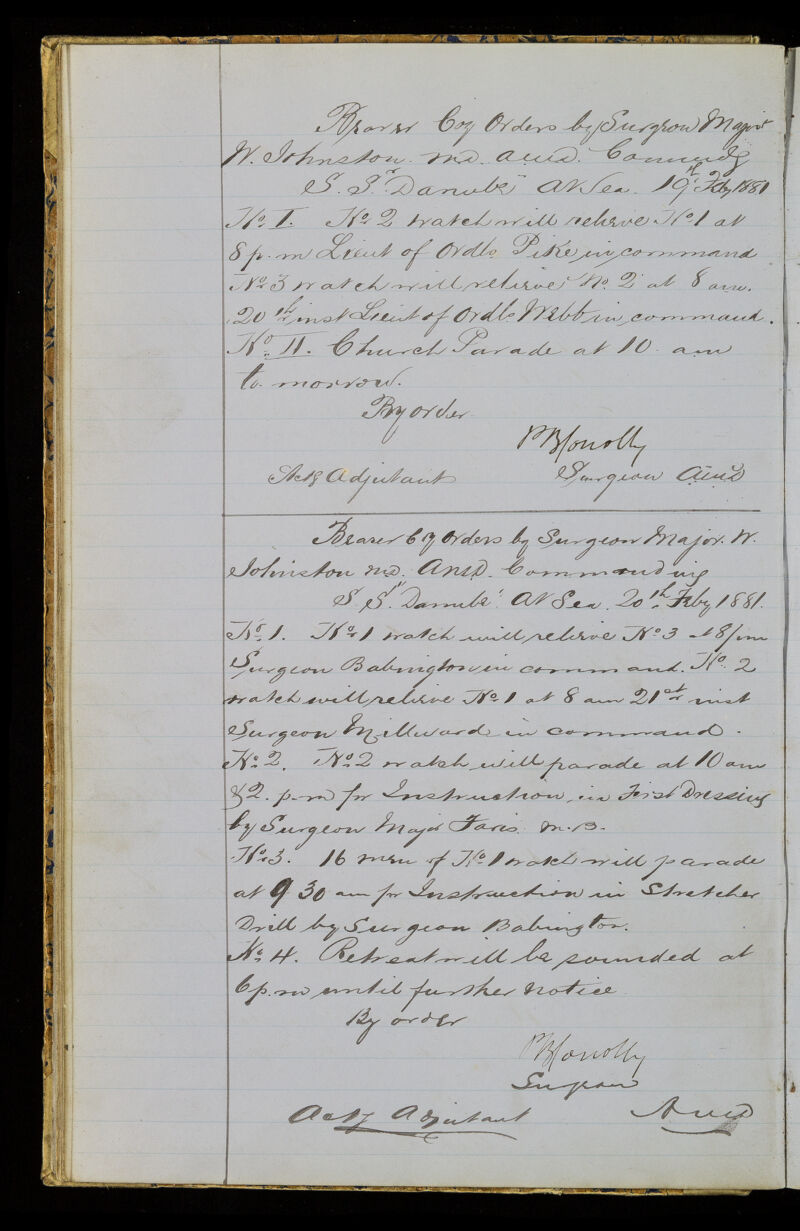 Bearer Coy Orders by Surgeon Major
W. Johnston. M.D. A.M.D. Commdg
S. S. "Danube" At Sea. 19th Feby 1881
No I. No 2 watch will relieve No 1 at
8 p.m Lieut of Ordls Pike in command
No 3 watch will relieve No. 2 at 8 am.
20th inst Lieut of Ordls Webb in command.
No II. Church Parade at 10. am
to morrow.
By order
P B Conolly
Actg Adjutant Surgeon AMD
Bearer Coy Orders by Surgeon Major. W.
Johnston M.D. A.M.D. Commanding
S. S. "Danube" At Sea. 20th Feby 1881.
No 1. No 1 watch will relieve No 3 at 8 pm
Surgeon Babington in command. No. 2
watch will relieve No 1 at 8 am 21st inst
Surgeon Millward in command.
No 2. No 2 watch will parade at 10 am
&2. p.m for Instruction in First Dressing
by Surgeon Major Faris M.B.
No 3. 16 men of No 1 watch will parade
at 9 30 am for Instruction in Stretcher
Drill by Surgeon Babington.
No 4. Retreat will be sounded at
6 p.m until further notice
By order
P B Conolly
Surgeon
Actg Adjutant AMD